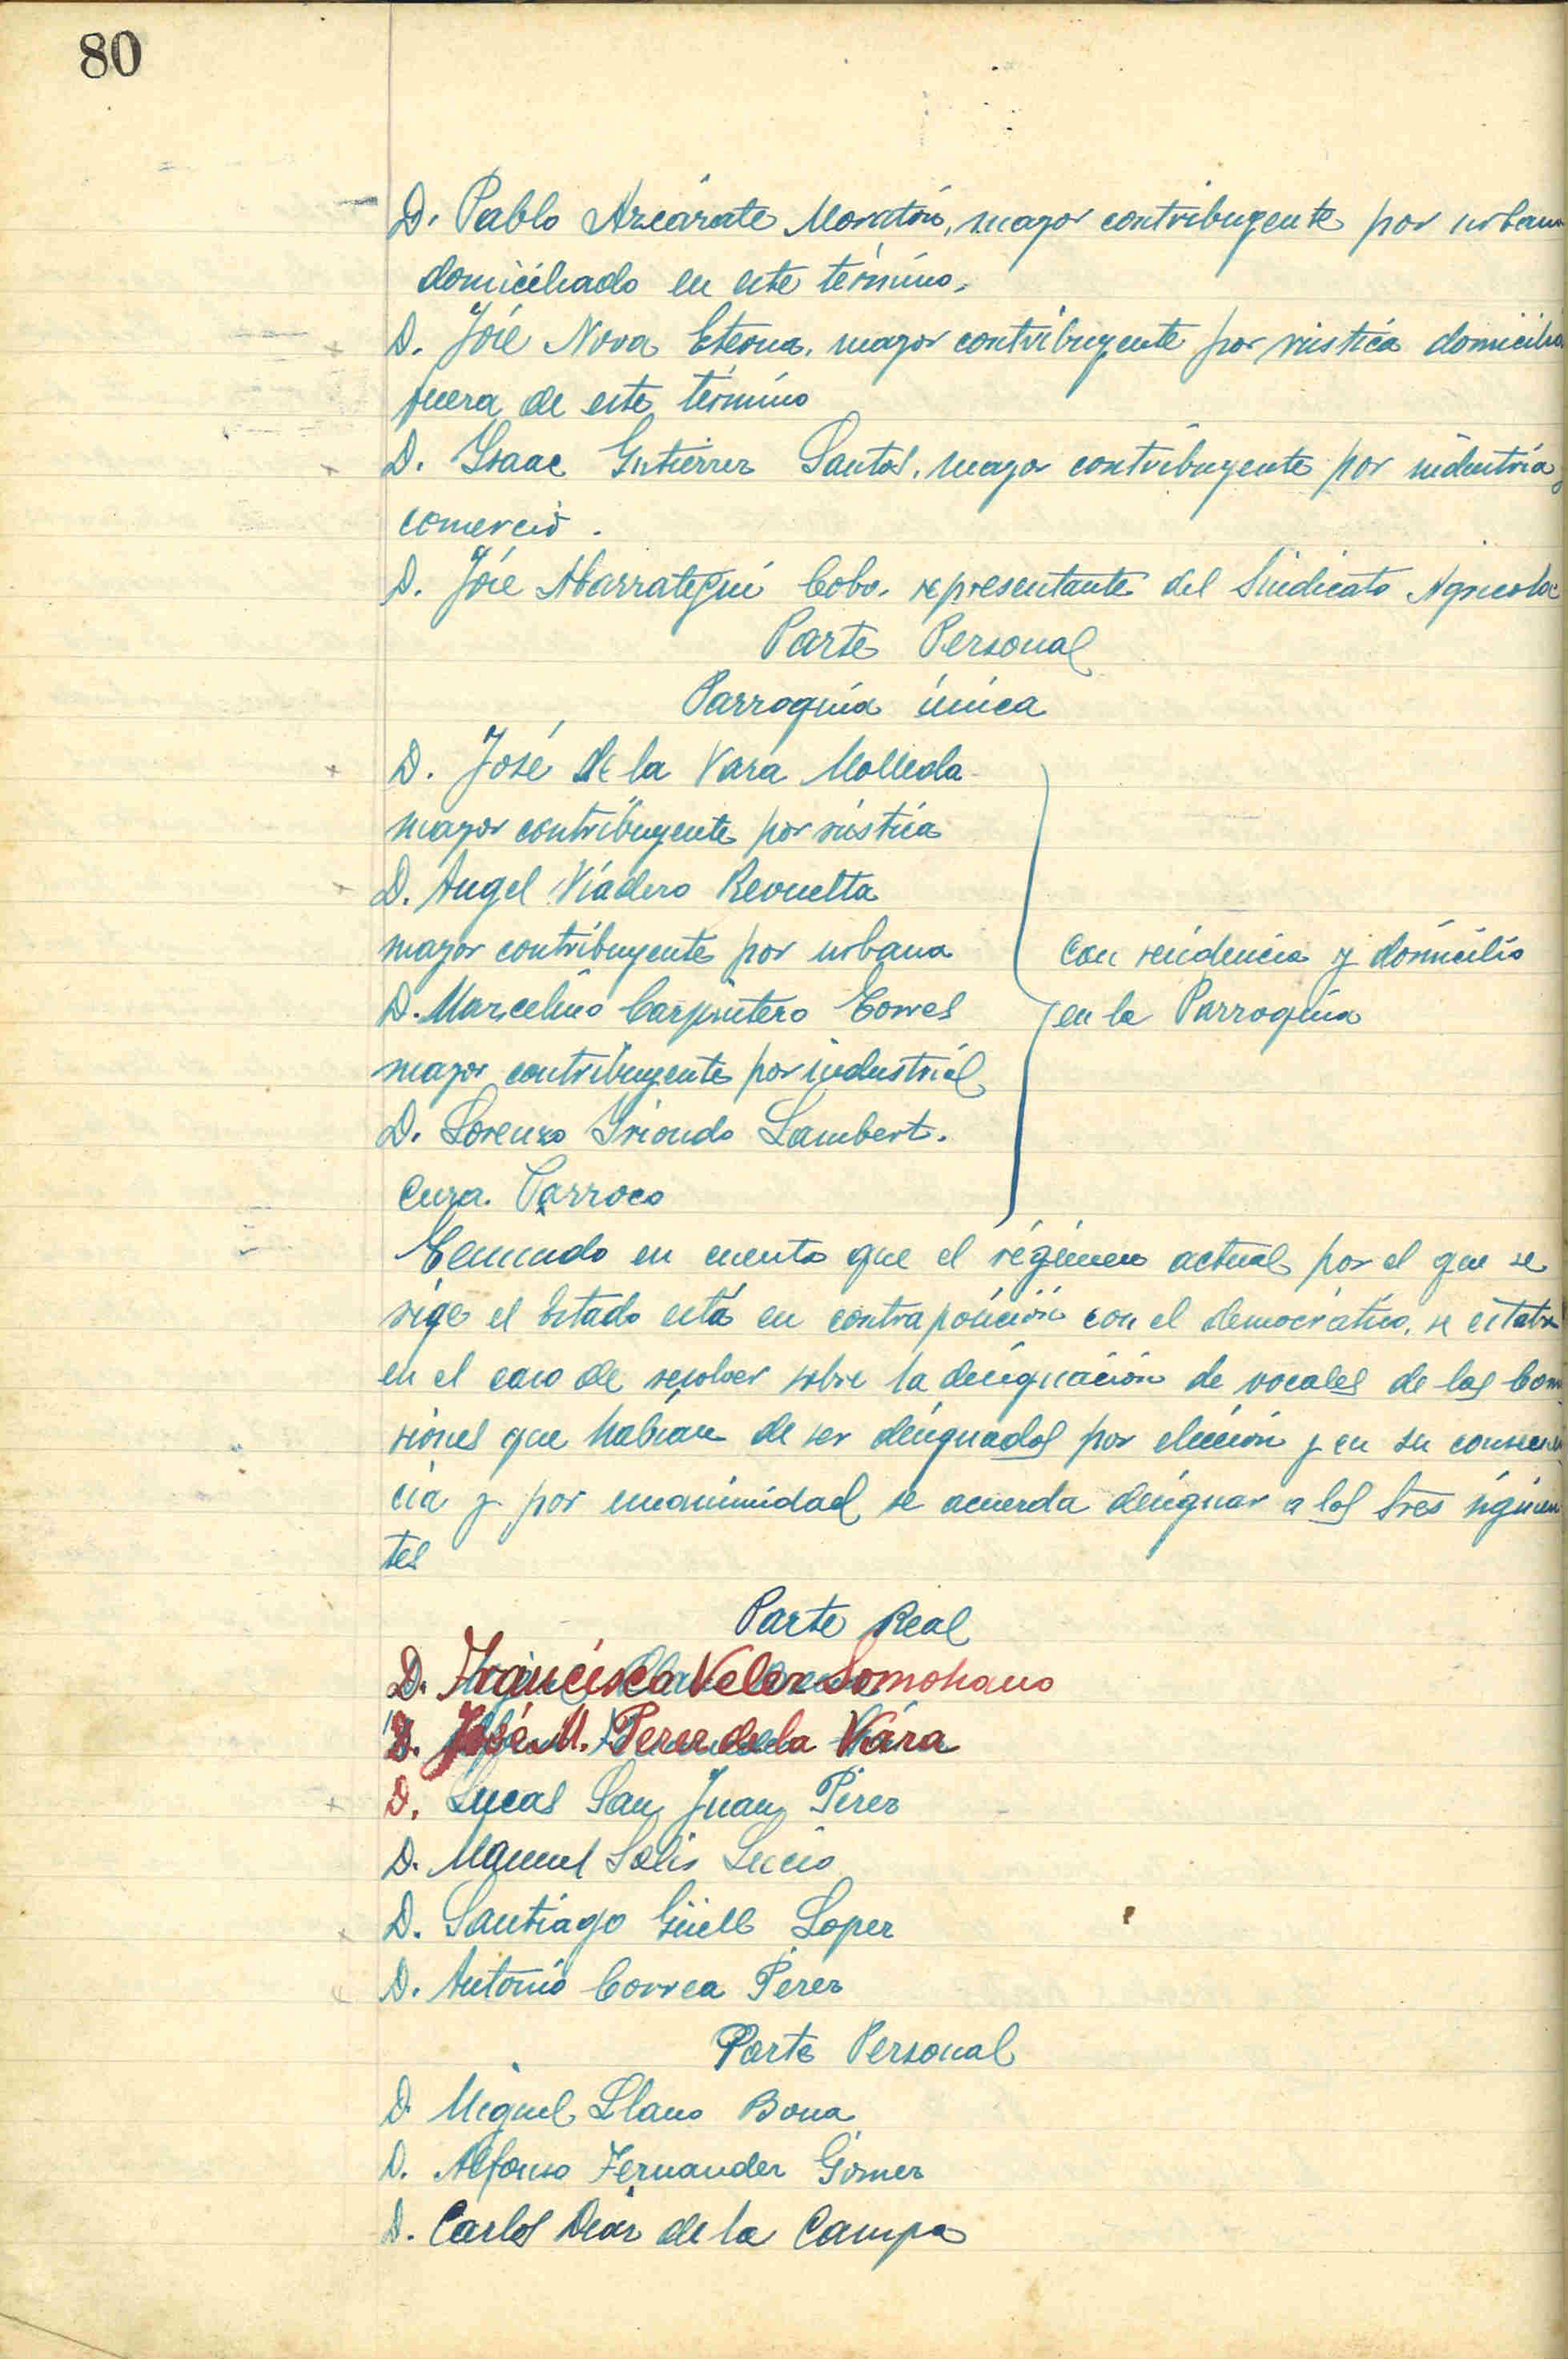 80
D. Pablo Azcárate Moratón, mayor contribuyente por urbana
domiciliado en este término.
D. José Nova Eterna, mayor contribuyente por rústica domicilia
fuera de este término
D. Isaac Gutierrez Santos, mayor contribuyente por industria y
comercio.
D. José Abarrategui Cobo, representante del Sindicato Agricola
Parte Personal
Parroquia única
D. José de la Vara Molleda
mayor contribuyente por rústica
D. Angel Viadero Revuelta
mayor contribuyente por urbana
Con residencia y domicilio
D. Marcelino Carpintero Torres
en la Parroquia
mayor contribuyente por industrial
D. Lorenzo Iriondo Lambert.
Cura Parroco
Teniendo en cuenta que el régimen actual por el que se
rige el Estado está en contraposición con el democrático, se está
en el caso de resolver sobre la designación de vocales de las Comi
siones que habian de ser designados por elección y en su consecuen
cia y por unanimidad se acuerda designar a los Sres siguien
tes
Parte Real
D. Francisco Velez Somohano
D. José M. Perez de la Vára
D. Lucas San Juan Pérez
D. Manuel Solis Lucio
D. Santiago Güell Lopez
D. Antonio Correa Pérez
Parte Personal
D. Miguel Llano Bona
D. Alfonso Fernandez Gómez
D. Carlos Diaz de la Campa